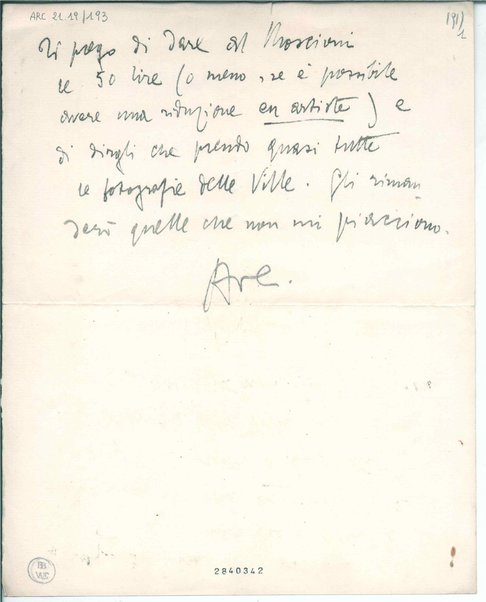 ARC 21.19/193
191/1
Ti prego di dare al Moscioni
le 50 lire (o meno, se è possibile
avere una riduzione en artiste) e
di dirgli che prendo quasi tutte
le fotografie delle Ville. Gli riman
derò quelle che non mi piacciono.
2840342